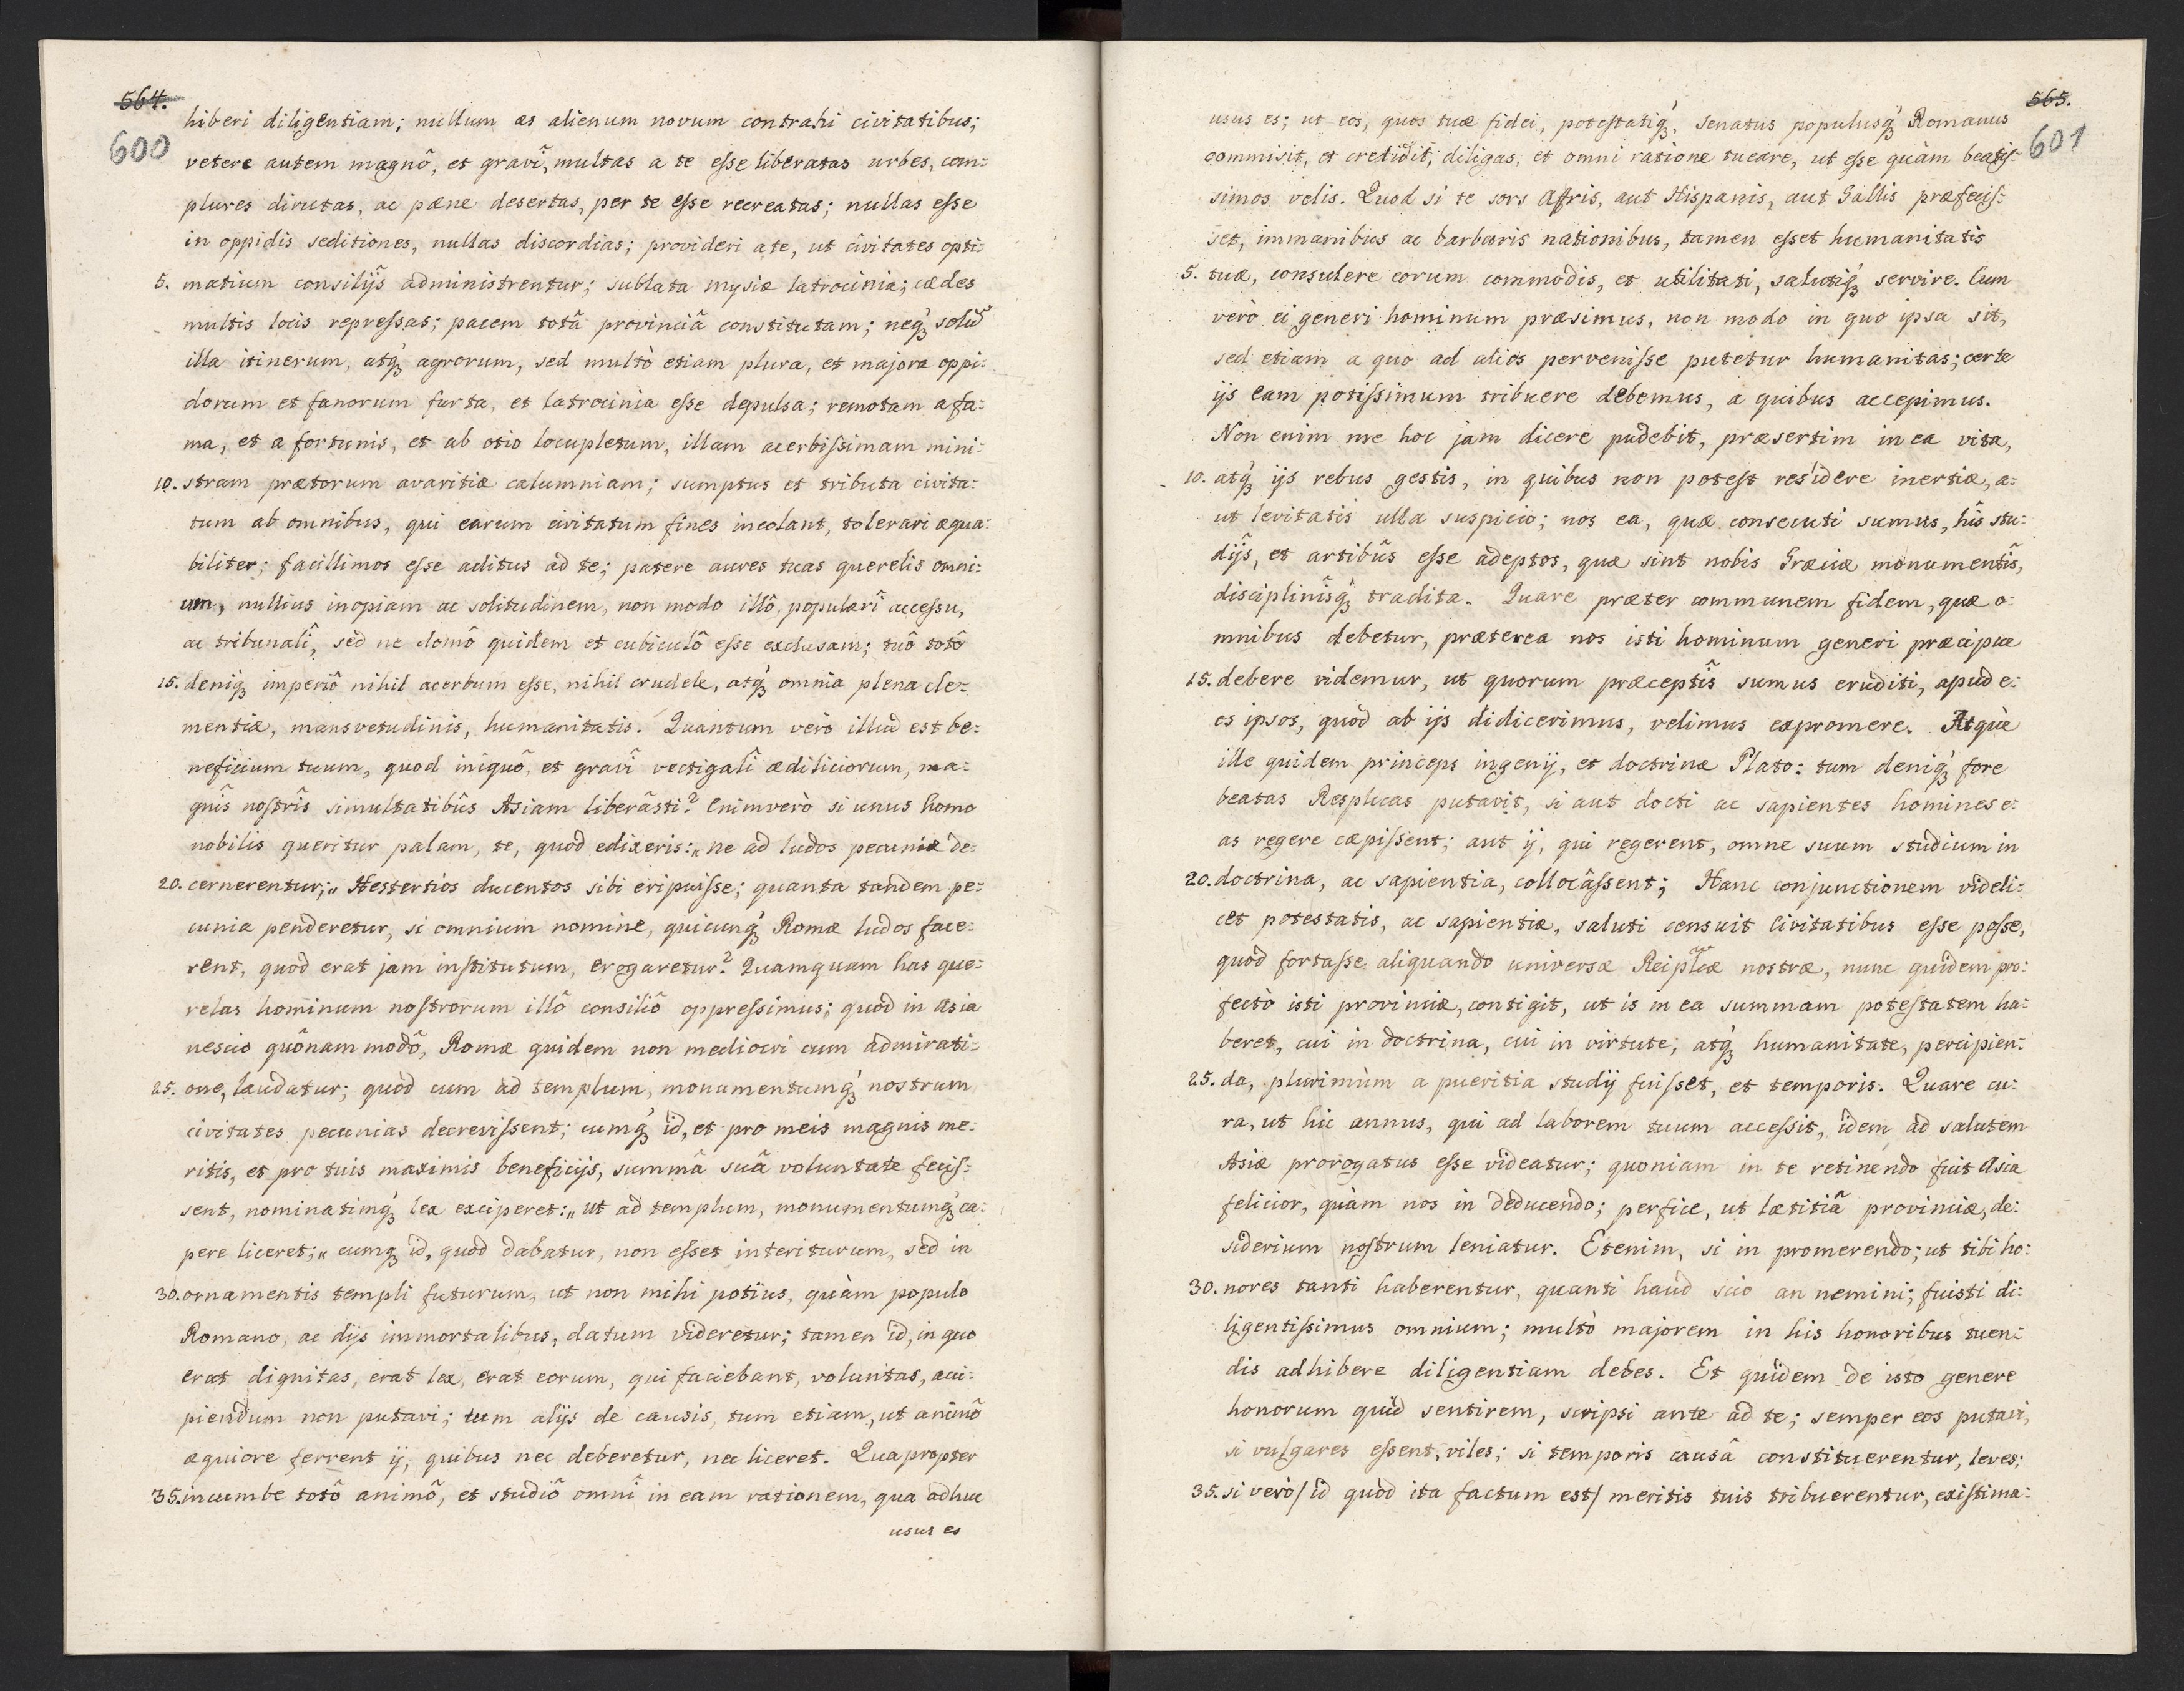 564.
600
hiberi diligentiam; nullum æs alienum novum contrahi civitatibus;
vetere autem magnô, et gravî, multas a te esse liberatas urbes, com=
plures dirutas, ac pæne desertas, per te esse recreatas; nullas esse
in oppidis seditiones, nullas discordias; provideri a te, ut civitates opti=
5. matium consilijs administrentur; sublata mysiæ latrocinia; cædes
multis locis repressas; pacem totâ provinciâ constitutam; neq́ꝫ solũ
illa itinerum, atq́ꝫ agrorum, sed multò etiam plura, et majora oppi=
dorum et fanorum furta, et latrocinia esse depulsa; remotam a fa=
ma, et a fortunis, et ab otio locupletum, illam acerbissimam mini=
10. stram prætorum avaritiæ calumniam; sumptus et tributa civita=
tum ab omnibus, qui earum civitatum fines incolant, tolerari æqua=
biliter; facillimos esse aditus ad te; patere aures tuas querelis omni=
um, nullius inopiam ac solitudinem, non modo illô, popularî accessu,
ac tribunalî, sed ne domô quidem et cubiculô esse exclusam; tuô totô
15. deniq́ꝫ imperiô nihil acerbum esse, nihil crudele, atq́ꝫ omnia plena cle=
mentiæ, mansvetudinis, humanitatis. Quantum verò illud est be=
neficium tuum, quod iniquô, et gravî vectigalî ædiliciorum, ma=
gnîs nostrîs simultatibûs Asiam liberâsti? Enimverò si unus homo
nobilis queritur palam, te, quod edixeris: „ ne ad ludos pecuniæ de=
20. cernerentur;„ Hestertios ducentos sibi eripuisse; quanta tandem pe=
cunia penderetur, si omnium nomine, quicunq́ꝫ Romæ ludos face=
rent, quod erat jam institutum, erogaretur? Quamquam has que=
relas hominum nostrorum illô consiliô oppressimus; quod in Asia
nescio quônam modô, Romæ quidem non mediocri cum admirati=
25. one, laudatur; quòd cum ad templum, monumentumq́ꝫ nostrum
civitates pecunias decrevissent; cumq́ꝫ id, et pro meis magnis me=
ritis, et pro tuis maximis beneficijs, summâ suâ voluntate fecis=
sent, nominatimq́ꝫ lex exciperet: „ ut ad templum, monumentumq́ꝫ ca=
pere liceret;„ cumq́ꝫ id, quod dabatur, non esset interiturum, sed in
30. ornamentis templi futurum, ut non mihi potius, quàm populo
Romano, ac dijs immortalibus, datum videretur; tamen id, in quo
erat dignitas, erat lex, erat eorum, qui faciebant, voluntas, acci=
piendum non putavi; tum alijs de causis, tum etiam, ut animô
æquiore ferrent ij, quibus nec deberetur, nec liceret. Quapropter
35. incumbe totô animô, et studiô omnî in eam rationem, qua adhuc
usus es
565.
601
usus es; ut eos, quos tuæ fidei, potestatiq́ꝫ, Senatus populusq́ꝫ Romanus
commisit, et credidit, diligas, et omni ratione tueare, ut esse quàm beatis=
simos velis. Quod si te sors Afris, aut Hispanis, aut Gallis præfecis=
set, immanibus ac barbaris nationibus, tamen esset humanitatis
5. tuæ, consulere eorum commodis, et utilitati, salutiq́ꝫ servire. Cum
verò ei generi hominum præsimus, non modo in quo ipsa sit,
sed etiam a quo ad alios pervenisse putetur humanitas; certe
ijs eam potissimum tribuere debemus, a quibus accepimus.
Non enim me hoc jam dicere pudebit, præsertim in ea vita,
10. atq́ꝫ ijs rebus gestis, in quibus non potest residere inertiæ, a=
ut levitatis ulla suspicio; nos ea, quæ consecuti sumus, hîs stu=
dijs, et artibûs esse adeptos, quæ sint nobis Græciæ monumentîs,
disciplinîsq́ꝫ tradita. Quare præter communem fidem, quæ o=
mnibus debetur, præterea nos isti hominum generi præcipue
15. debere videmur, ut quorum præceptîs sumus eruditi, apud e=
os ipsos, quod ab ijs didicerimus, velimus expromere. Atque
ille quidem princeps ingenij, et doctrinæ Plato: tum deniq́ꝫ fore
beatas Resplicas putavit, si aut docti ac sapientes homines e=
as regere cæpissent; aut ij, qui regerent, omne suum studium in
20. doctrina, ac sapientia, collocâssent; Hanc conjunctionem videli=
cet potestatis, ac sapientiæ, saluti censuit Civitatibus esse posse,
quòd fortasse aliquando universæ Reiplcæ nostræ, nunc quidem pro=
fectò isti provinciæ, contigit, ut is in ea summam potestatem ha=
beret, cui in doctrina, cui in virtute, atq́ꝫ humanitate, percipien=
25. da, plurimùm a pueritia studij fuisset, et temporis. Quare cu=
ra, ut hic annus, qui ad laborem tuum accessit, idem ad salutem
Asiæ prorogatus esse videatur; quoniam in te retinendo fuit Asia
felicior, quàm nos in deducendo; perfice, ut lætitiâ provinciæ, de=
siderium nostrum leniatur. Etenim, si in promerendo; ut tibi ho=
30. nores tanti haberentur, quanti haud scio an nemini; fuisti di=
ligentissimus omnium; multò majorem in his honoribus tuen=
dis adhibere diligentiam debes. Et quidem de isto genere
honorum quid sentirem, scripsi ante ad te; semper eos putavi,
si vulgares essent, viles; si temporis causâ constituerentur, leves;
35. si verò/ id quòd ita factum est/ meritis tuis tribuerentur, existima=